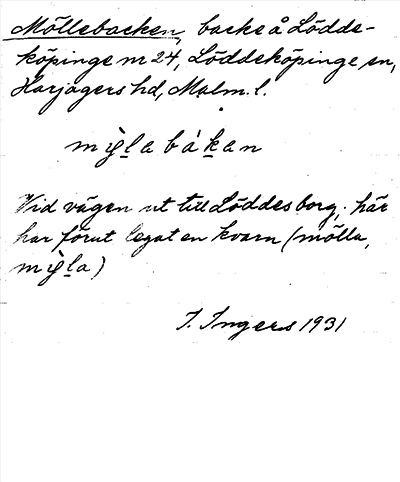 Möllebacken, backe å Lödde-
köpinge nr 24, Löddeköpinge sn,
Harjagers hd, Malm. l.
mỳl̲a bákan
Vid vägen ut till Löddesborg; här
har förut legat en kvarn (mölla,
mỳl̲a)
I. Ingers 1931